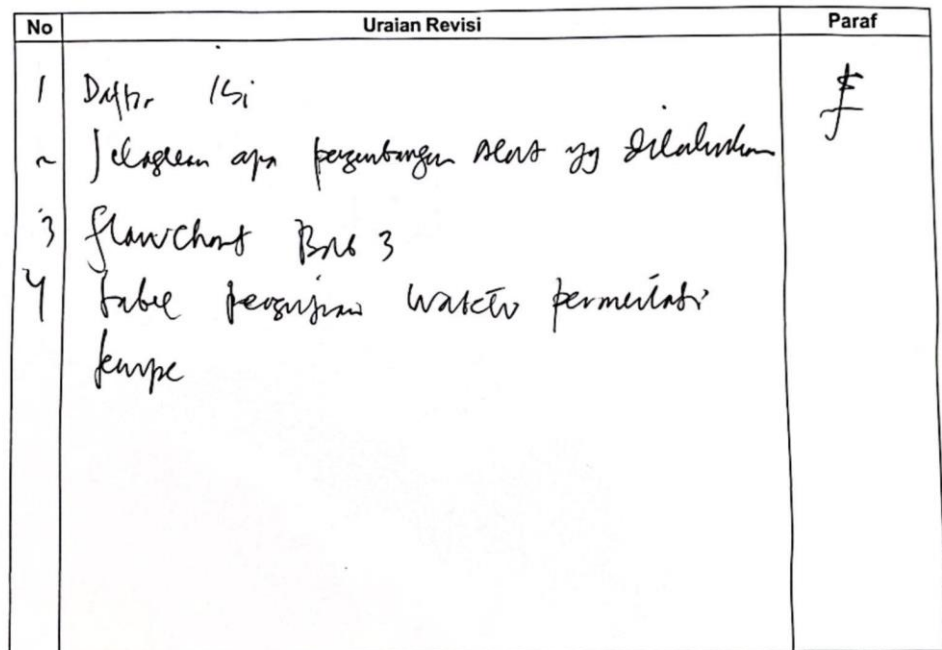 No Uraian Revisi Paraf
1 Daftar Isi
2 Jelaskan apa pengembangan alat yg dilakukan
3 flowchart Bab 3
4 tabel pengujian waktu fermentasi
tempe